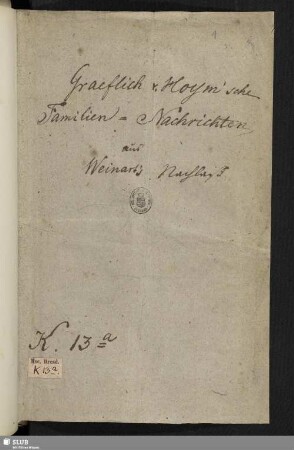 Graeflich v. Hoym'sche
Familien = Nachrichten
aus
Weinarts Nachlaß
K. 13a
Msc. Dresd.
K 13a
SLUB